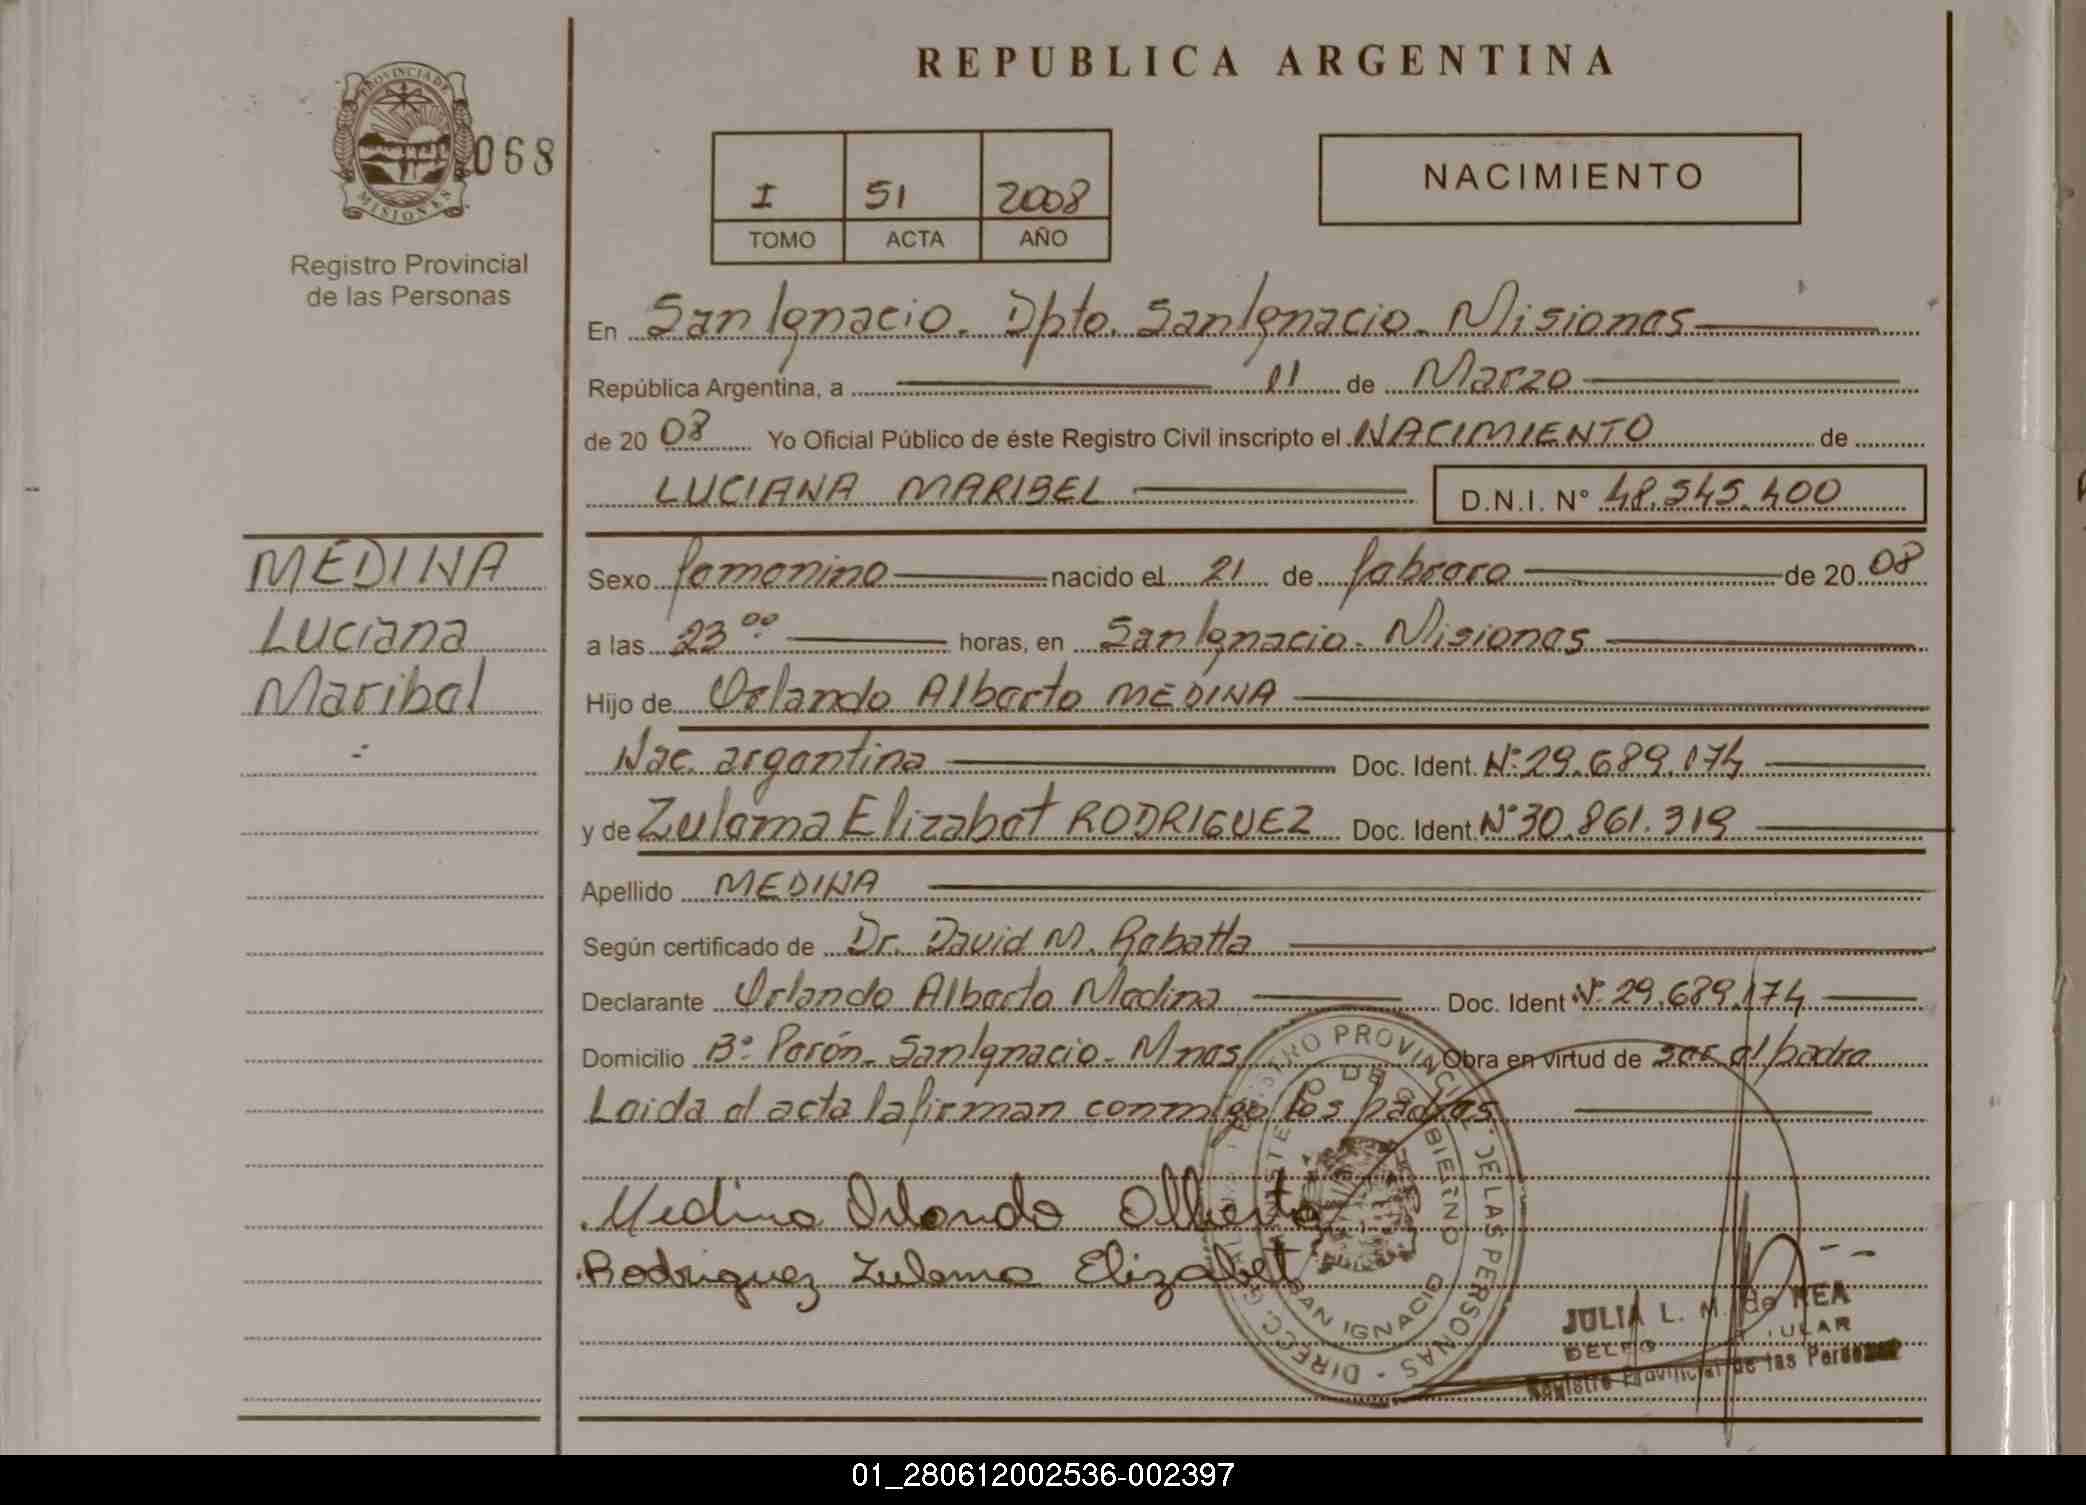 REPUBLICA ARGENTINA
PROVINCIA DE
MISIONES
068
Registro Provincial
de las Personas
I 51 2008
TOMO ACTA AÑO
NACIMIENTO
En San Ignacio. Dpto. San Ignacio. Misiones
República Argentina, a 11 de Marzo
de 20 08 Yo Oficial Público de éste Registro Civil inscripto el NACIMIENTO de
LUCIANA MARIBEL D.N.I. N° 48.545.400
MEDINA
Luciana
Maribel
Sexo femenino nacido el 21 de febrero de 20 08
a las 23 00 horas, en San Ignacio - Misiones
Hijo de Orlando Alberto MEDINA
Nac. argentina Doc. Ident. N° 29.689.174
y de Zulema Elizabet RODRIGUEZ Doc. Ident. N° 30.861.319
Apellido MEDINA
Según certificado de Dr. David M.
Declarante Orlando Alberto Medina Doc. Ident N° 29.689.174
Domicilio B° Perón - San Ignacio - Mnes Obra en virtud de ser el padre
Leida el acta la firman conmigo los padres
Medina Orlando Alberto
Rodriguez Zulema Elizabet
REGISTRO PROVINCIAL DE LAS PERSONAS
DIRECC. G
DE GOBIERNO
SAN IGNACIO
JULIA L. M. de REA
Registro Provincial de las Personas
01_280612002536-002397